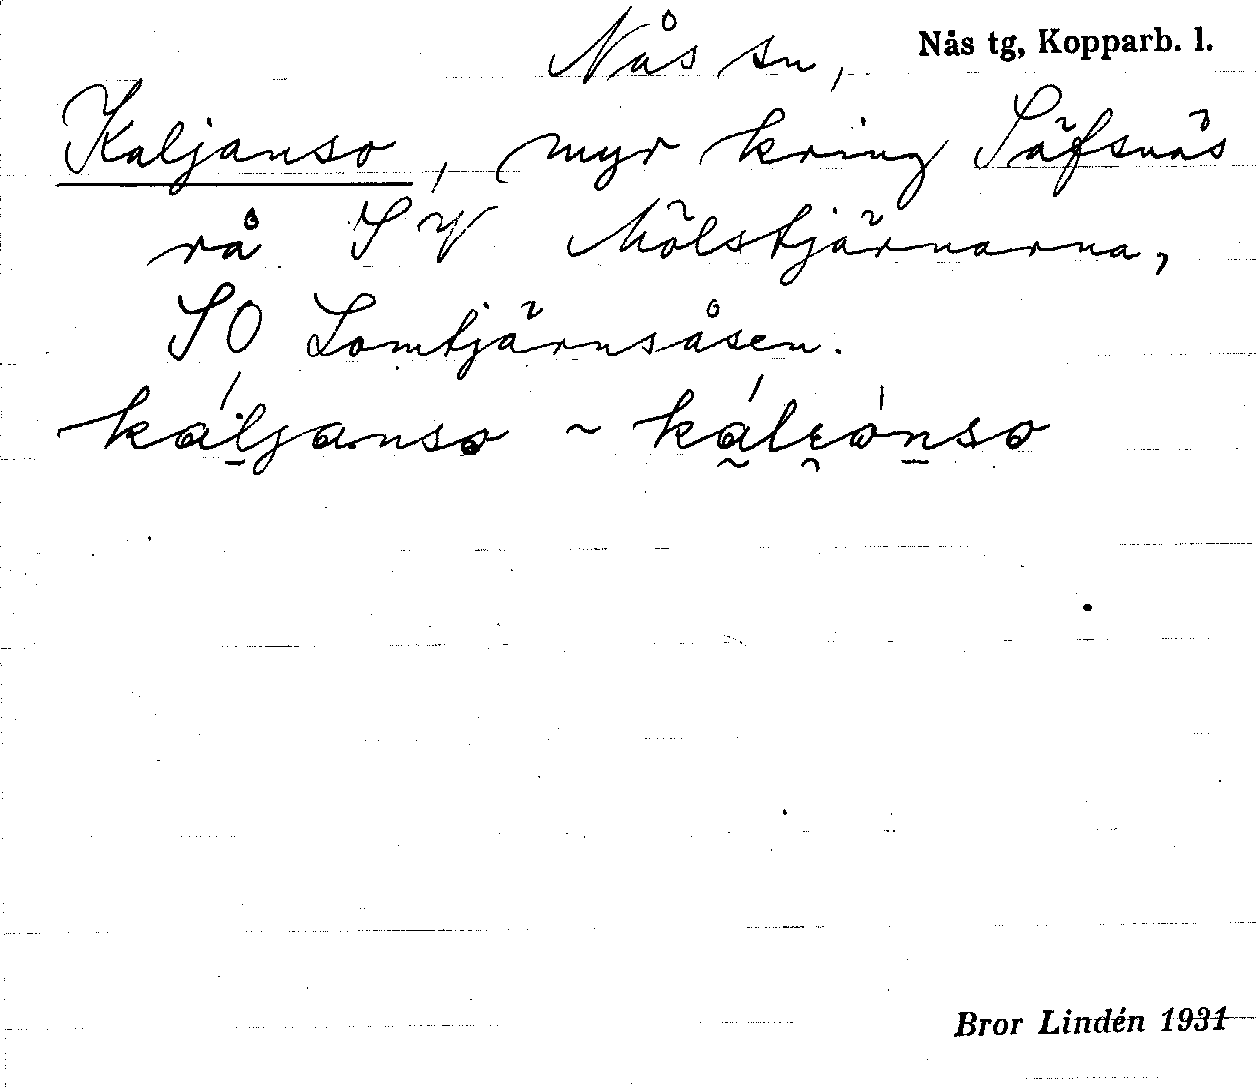 Nås sn, Nås tg, Kopparb. l.
Kaljanso, myr kring Säfsnäs
rå SV Mölstjärnarna,
SO Lomtjärnsåsen.
káljanso ~ káleónso
Bror Lindén 1931